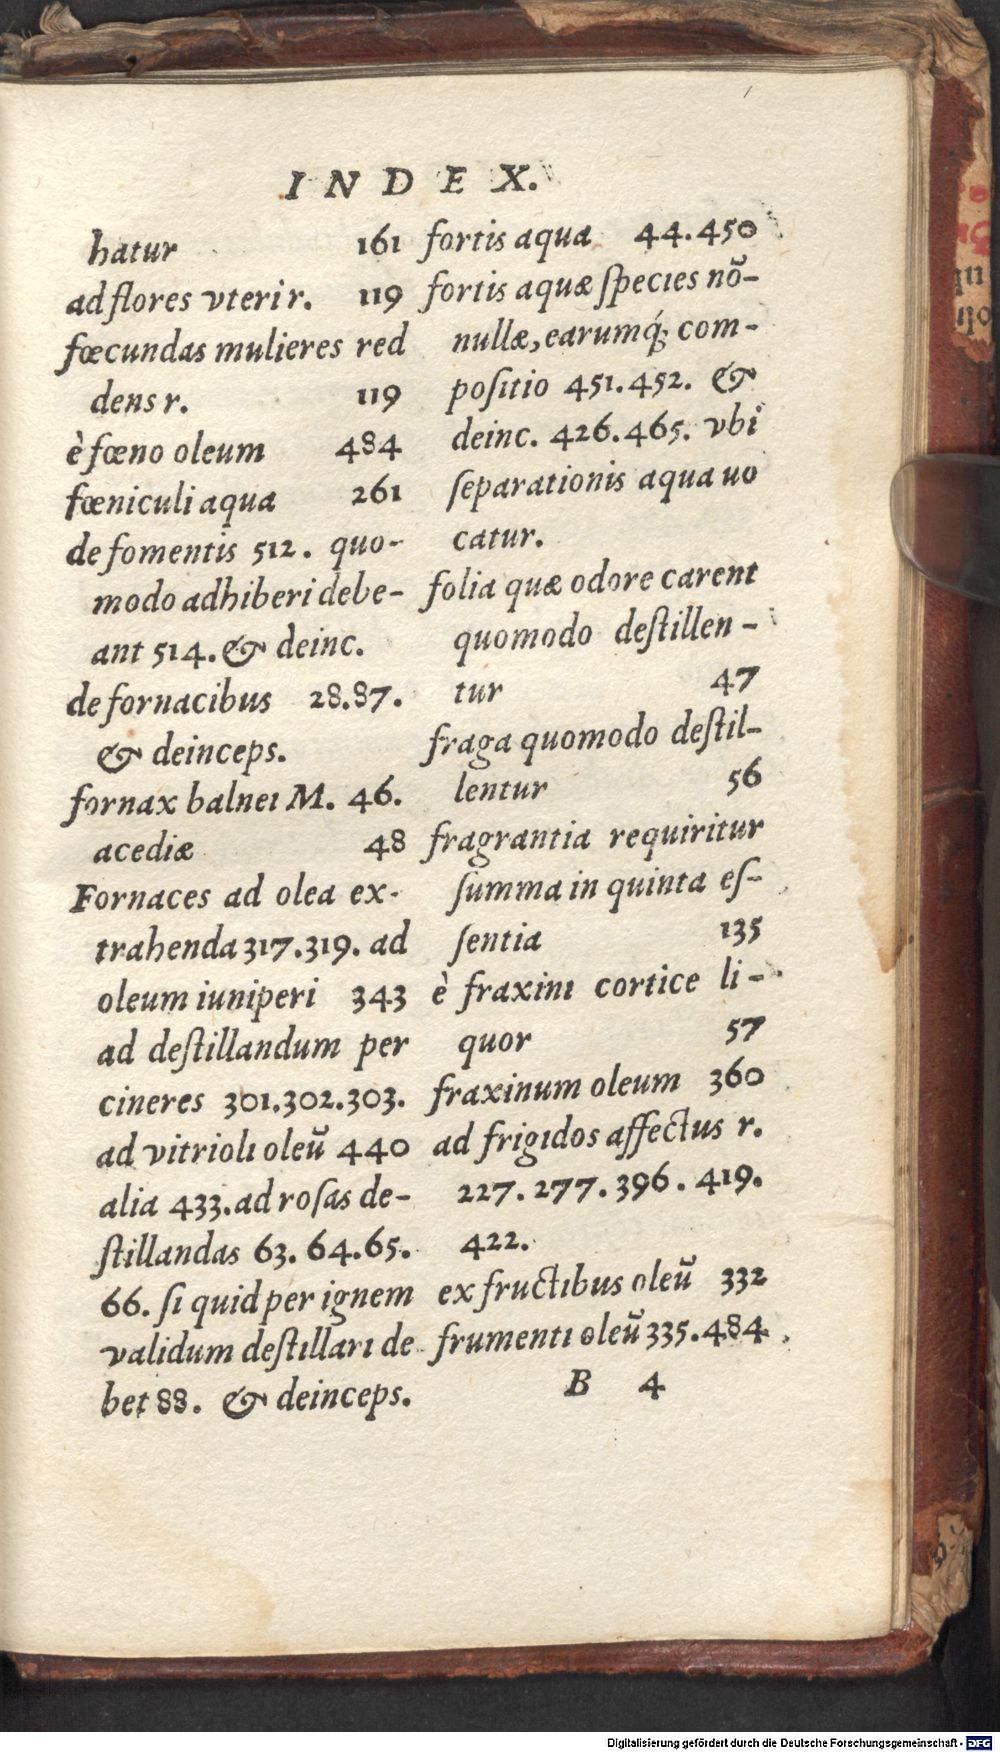 INDEX.
hatur 161
ad flores vteri r. 119
fœcundas mulieres red
dens r. 119
è fœno oleum 484
fœniculi aqua 261
de fomentis 512. quo-
modo adhiberi debe-
ant 514. & deinc.
de fornacibus 28.87.
& deinceps.
fornax balnei M. 46.
acediæ 48
Fornaces ad olea ex-
trahenda 317.319. ad
oleum iuniperi 343
ad deſtillandum per
cineres 301.302.303.
ad vitrioli oleũ 440
alia 433. ad roſas de-
ſtillandas 63. 64.65.
66. ſi quid per ignem
validum deſtillari de
bet 88. & deinceps.
fortis aqua 44.450
fortis aquæ ſpecies nõ-
nullæ, earumq́; com-
poſitio 451.452. &
deinc. 426.465. vbi
ſeparationis aqua uo
catur.
folia quæ odore carent
quomodo deſtillen-
tur 47
fraga quomodo deſtil-
lentur 56
fragrantia requiritur
ſumma in quinta eſ-
ſentia 135
è fraxini cortice li-
quor 57
fraxinum oleum 360
ad frigidos affectus r.
227. 277. 396. 419.
422.
ex fructibus oleũ 332
frumenti oleũ 335.484.
B 4
Digitalisierung gefördert durch die Deutsche Forschungsgemeinschaft - DFG